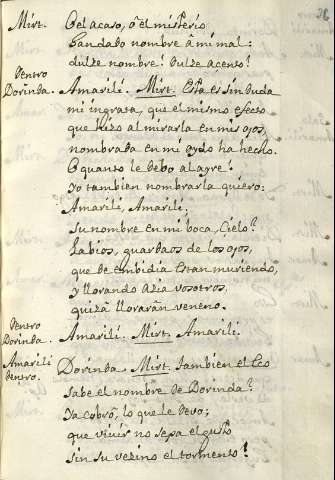 26
Mirt. O el acaso, ô el misterio
han dado nombre â mi mal:
dulze nombre! dulze acento!
Dentro Dorinda. Amarili. Mirt. Esta es sin duda
mi ingrata, que el mismo efecto
que hizo al mirarla en mis ojos,
nombrada en mi oydo ha hecho.
O quanto le debo al ayre!
Yo tambien nombrarla quiero:
Amarili, Amarili;
su nombre en mi boca, Cielo?
Labios, guardaos de los ojos,
que de embidia estan muriendo,
y llorando azia vosotros,
quizâ llorarân veneno.
Dentro Dorinda. Amarili. Mirt. Amarili.
Amarili dentro. Dorinda. Mirt. tambien el Eco
sabe el nombre de Dorinda?
Ya cobrô, lo que le devo;
que vivir no sepa el gusto
sin su vezino el tormento!